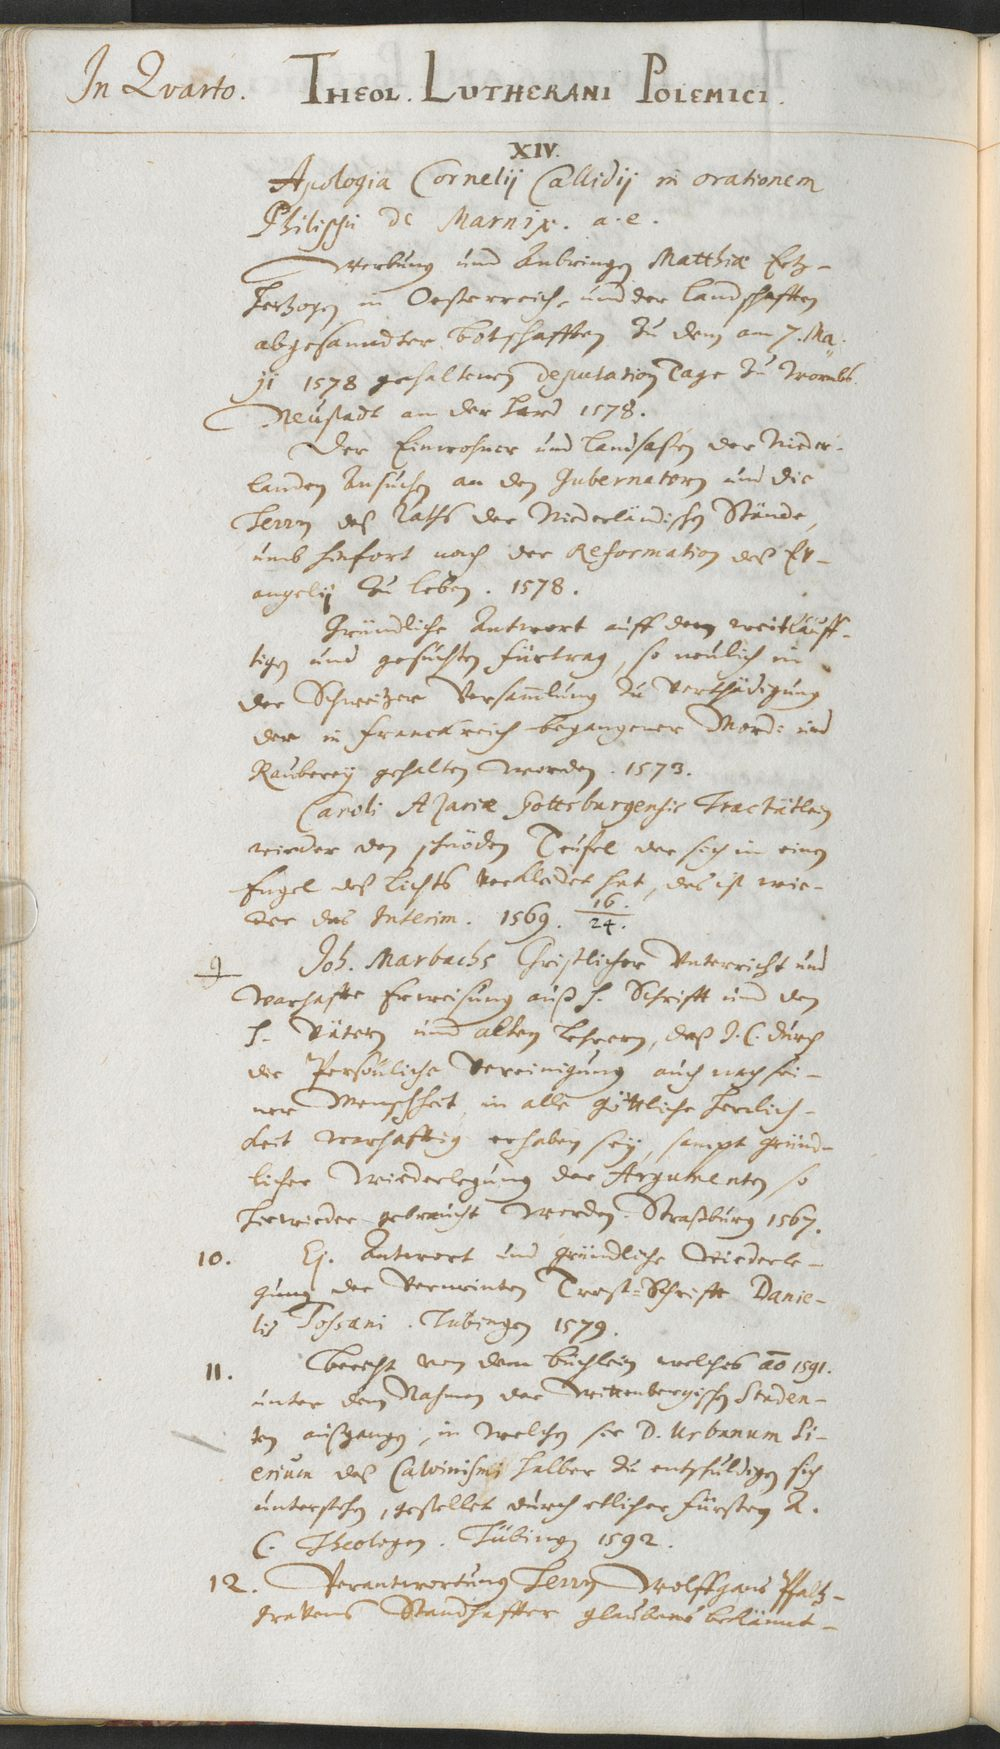 In Qvarto. THEOL. LUTHERANI POLEMICI.
XIV.
Apologia Cornelij Callidij in orationem
Philippi de Marnix. a. e.
Werbung und Anbringen Matthiæ Ertz-
Hertzogen in Oesterreich, und der Landschafften
abgesanndter Botschafften zu dem am 7. Ma-
ji 1578 gehaltenen Deputation Tage zu Wormbs.
Neustadt an der Hard 1578.
Der Einwohner und Landsassen der Nieder-
landen Ansuchen an den Gubernatorn und die
Herrn deß Raths der Niederländischen Stände,
umb hinfort nach der Reformation deß Ev-
angelij zu leben. 1578.
Gründliche Antwort auff dem weitläuff-
tigen und gesuchten Fürtrag, so neulich in
der Schweitzer Versamlung zu Verthädigung
der in Franckreich begangener Mord und
Rauberey gehalten worden. 1573.
Caroli Azariæ Gottsburgensis Tractätlein
wieder den schnöden Teufel der sich in einen
Engel deß Lichts verkleidet hat, das ist wie-
der das Interim. 1569. 16./24.
9 Joh. Marbachs Christlicher Unterricht und
warhaffte Erweisung auß H. Schrifft und den
H. Vätern und alten Lehrern, daß J. C. durch
die Persönliche Vereinigung auch nach sei-
ner Menschheit, in alle göttliche Herrlich-
keit warhafftig erhaben sey, sampt gründ-
licher Wiederlegung der Argumenten so
hierwieder gebraucht werden. Straßburg 1567.
10. Ej. Antwort und gründliche Wiederle-
gung der vermeinten Trost-Schrifft Danie-
lis Tossani. Tübingen 1579.
11. Bericht von dem Büchlein welches ao 1591.
unter dem Nahmen der Wittenbergischen Studen-
ten außgangen, in welchen sie D. Urbanum Pi-
erium deß Calvinismi halber zu entschuldigen sich
unterstehen, gestellet durch etlicher Fürsten A.
C. Theologen. Tübingen 1592.
12. Verantwortung Herrn Wolffgangs Pfaltz-
gravens Standhaffter glaubens bekännt-